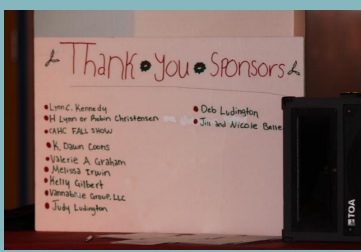 Thank You Sponsors
Lynn C. Kennedy
H Lynn or Robin Christensen
CAHC FALL SHOW
K. Dawn Coons
Valerie A Graham
Melissa Irwin
Kelly Gilbert
Group, LLC
Judy Ludington
Deb Ludington
Jim and Nicole
TOA